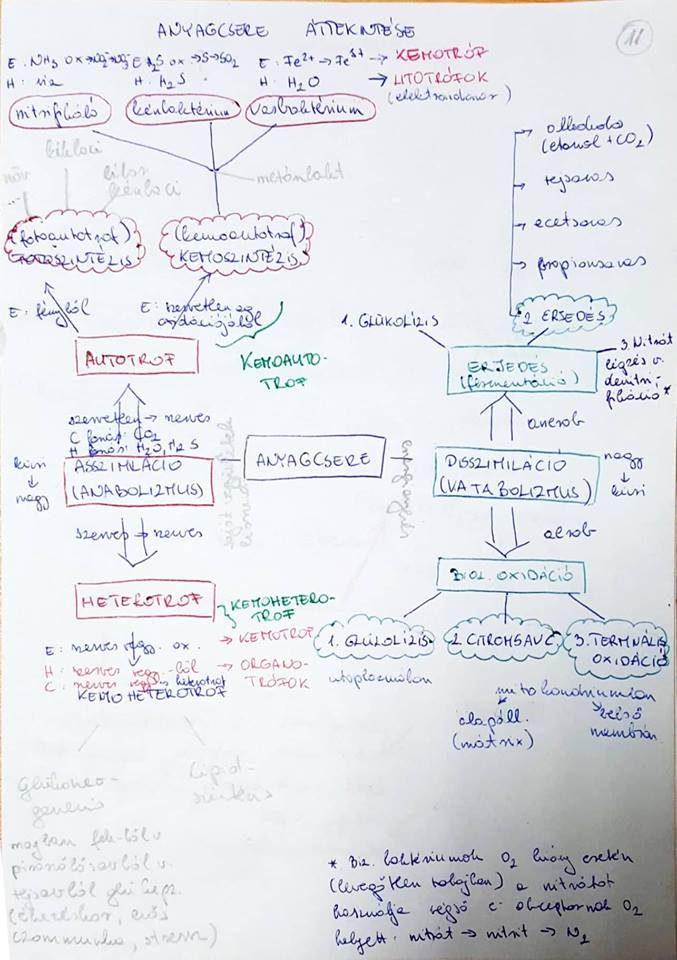 ANYAGCSERE ÁTTEKINTÉSE
11
E: NH3 ox → NO2⁻ → NO3⁻
H: víz
E: H2S ox → S → SO2
H: H2S
E: Fe2+ → Fe3+
H: H2O
→ KEMOTRÓF
→ LITOTRÓFOK
(elektrondonor)
nitrifikáló
kénbaktérium
vasbaktérium
kékbaci
növ
bíbor
kénbaci
metánbakt
(fotoautotróf)
FOTOSZINTÉZIS
(kemoautotróf)
KEMOSZINTÉZIS
E: fényből
E: szervetlen a.
oxidációjából
AUTOTRÓF
KEMOAUTO-
TRÓF
szervetlen → szerves
C forrás: CO2
H forrás: H2O, H2S
kicsi
↓
nagy
ASSZIMILÁCIÓ
(ANABOLIZMUS)
szerves → szerves
saját
ANYAGCSERE
HETEROTRÓF
KEMOHETERO-
TRÓF
E: szerves vegy. ox.
→ KEMOTRÓF
H: szerves vegy.-ből
→ ORGANO-
TRÓFOK
C: szerves vegy. heterotróf
KEMOHETEROTRÓF
Glükoneo-
genezis
Lipid-
szintézis
májban feh-ből v.
piroszőlősavból v.
tejsavból glü képz.
(éhezéskor, erős
izommunka, stressz)
alkoholos
(etanol + CO2)
tejsavas
ecetsavas
propionsavas
1. GLÜKOLÍZIS
2. ERJEDÉS
ERJEDÉS
(fermentáció)
3. Nitrát
légzés v.
denitri-
fikáció *
anaerob
DISSZIMILÁCIÓ
(KATABOLIZMUS)
nagy
↓
kicsi
aerob
BIOL. OXIDÁCIÓ
1. GLÜKOLÍZIS
2. CITROMSAVC.
3. TERMINÁLIS
OXIDÁCIÓ
citoplazmában
mitokondriumban
alapáll.
(mátrix)
belső
membrán
* Biz. baktériumok O2 hiány esetén
(levegőtlen talajban) a nitrátot
használja végső e⁻ akceptornak O2
helyett: nitrát → nitrit → N2